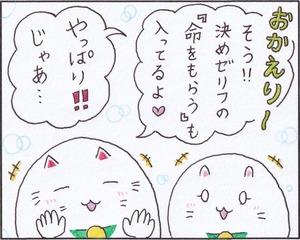 おかえりー
そう!!
決めゼリフの
『命をもらう』も
入ってるよ♡
やっぱり!!
じゃあ…